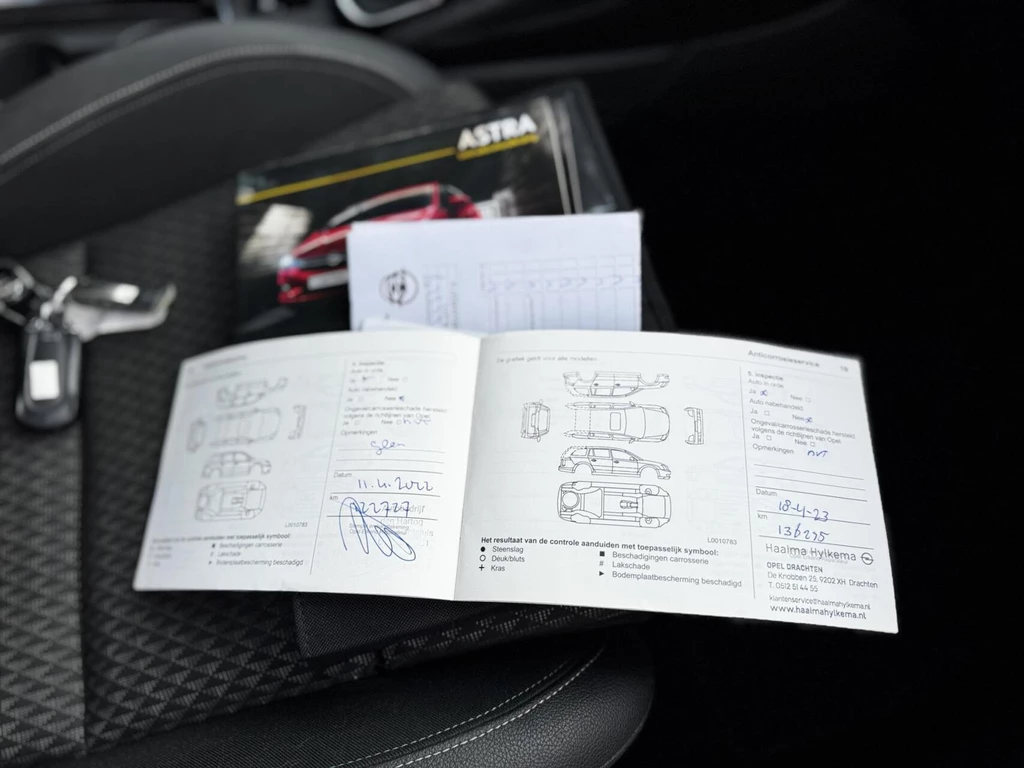 ASTRA
5. Inspectie
Auto in orde
Ja Nee
Auto nabehandeld
Ja Nee
Ongeval/carrosserieschade hersteld
volgens de richtlijnen van Opel:
Ja Nee
Opmerkingen
geen
Datum
11.4.2022
km
L0010783
Beschadigingen carrosserie
# Lakschade
► Bodemplaatbescherming beschadigd
De grafiek geldt voor alle modellen.
Anticorrosieservice 19
L0010783
Het resultaat van de controle aanduiden met toepasselijk symbool:
● Steenslag
○ Deuk/bluts
+ Kras
■ Beschadigingen carrosserie
# Lakschade
► Bodemplaatbescherming beschadigd
5. Inspectie
Auto in orde
Ja Nee
Auto nabehandeld
Ja Nee
Ongeval/carrosserieschade hersteld
volgens de richtlijnen van Opel:
Ja Nee
Opmerkingen nvt
Datum
18-4-23
km
136295
Haaima Hylkema
OPEL DRACHTEN
De Knobben 25, 9202 XH Drachten
T. 0512 51 44 55
klantenservice@haaimahylkema.nl
www.haaimahylkema.nl